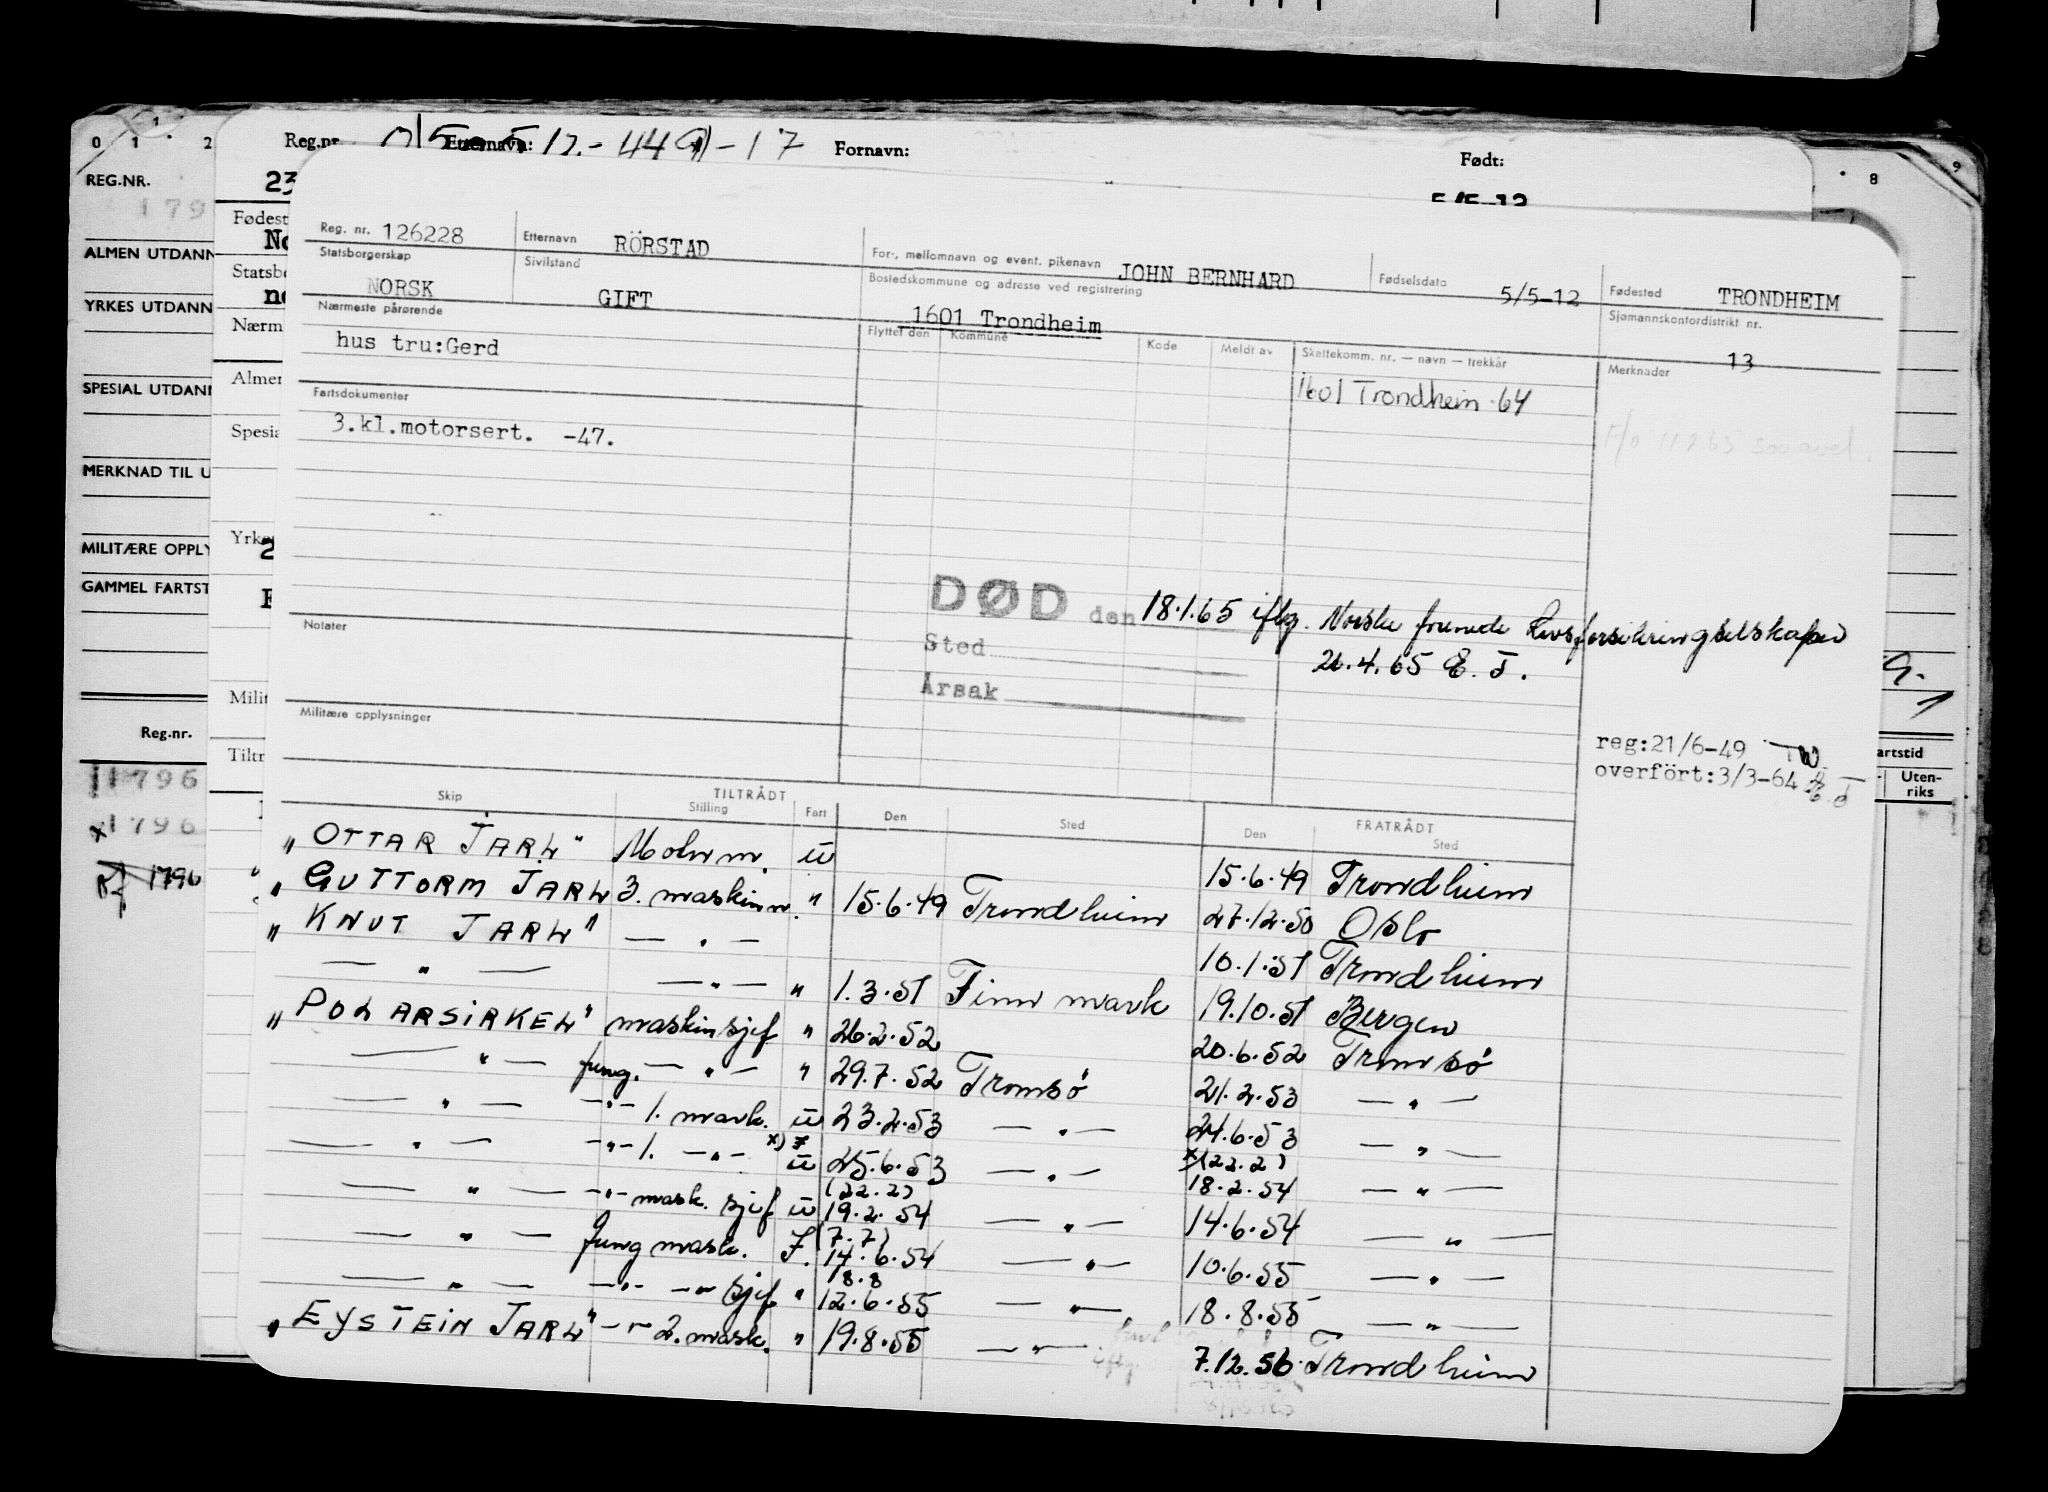 0 1 2
Reg.nr. Etternavn: 12.-449)-17 Fornavn: Født:
8 9
REG.NR.
23
5/5-12
179
Fødest
ALMEN UTDANN
No
Statsbo
YRKES UTDANN
no
Nærm
SPESIAL UTDANN
Almen
Spesia
MERKNAD TIL U
Yrke
2
MILITÆRE OPPLY
GAMMEL FARTST
Milit
Reg.nr.
Tiltr
11796
x1796
1796
artstid
Uten-
riks
Reg. nr. 126228 Etternavn RÖRSTAD For-, mellomnavn og event. pikenavn JOHN BERNHARD Fødselsdato 5/5-12 Fødested TRONDHEIM
Statsborgerskap NORSK Sivilstand GIFT Bostedskommune og adresse ved registrering 1601 Trondheim Sjømannskontordistrikt nr. 13
Nærmeste pårørende Flyttet den Kommune Kode Meldt av Skattekomm. nr. — navn — trekkår Merknader
hus tru:Gerd
1601 Trondheim -64
Fartsdokumenter
3.kl.motorsert. -47.
DØD den 18.1.65 iflg. Norske forenede Livsforsikringselskaper
Notater
Sted
21.4.65 E. J.
Årsak
Militære opplysninger
reg:21/6-49 TW.
overfört:3/3-64 E. J
TILTRÅDT FRATRÅDT
Skip Stilling Fart Den Sted Den Sted
"OTTAR JARL" Motorm. u 15.6.49 Trondheim
"GUTTORM JARL 3. maskinm. " 15.6.49 Trondheim 27.12.50 Oslo
"KNUT JARL" — " — 10.1.51 Trondheim
— " — — " — " 1.3.51 Finnmark 19.10.51 Bergen
"POLARSIRKEL" maskinsjef " 26.2.52 20.6.52 Tromsö
— " — fung. — " — " 29.7.52 Tromsö 21.2.53 — " —
— " — — " — 1. mask. u 23.2.53 — " — 24.6.53 — " —
— " — — " — 1. — " — x) F u 25.6.53 — " — x(22.2) 18.2.54 — " —
— " — — " — mask. sjef u (22.2) 19.2.54 — " — 14.6.54 — " —
— " — fung mask. F. (7.7) 14.6.54 — " — 10.6.55 — " —
— " — — " — — " sjef " 18.8 12.6.55 — " — 18.8.55 — " —
"EYSTEIN JARL" — " — 2. mask. " 19.8.55 — " — iflg. 7.12.56 Trondheim